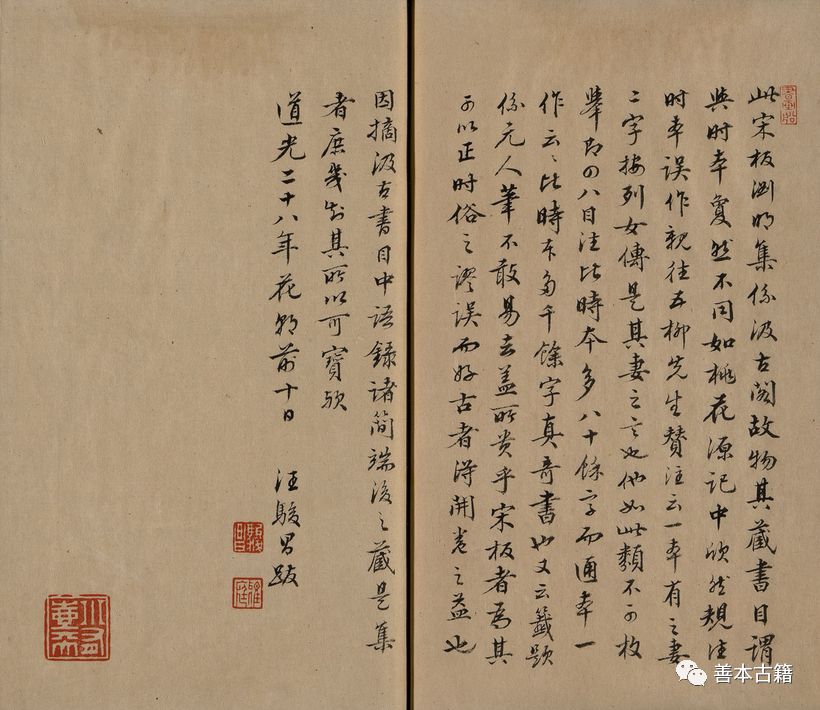 此宋板渕明集係汲古阁故物其藏書目謂
與时本夐然不同如桃花源記中欣然規注
时本误作親往五柳先生贊注云一本有之妻
二字按列女傳是其妻之言也他如此類不可枚
舉即四八目注比時本多八十餘字而通本一
作云云比時本多千餘字真奇書也又云籤题
係元人筆不敢易去盖所贵乎宋板者為其
可以正时俗之謬误而好古者得開卷之益也
因摘汲古書目中语録诸简端後之藏是集
者庶幾知其所以可寳欤
道光二十八年花朝前十日 汪駿昌跋
駿昌
善本古籍